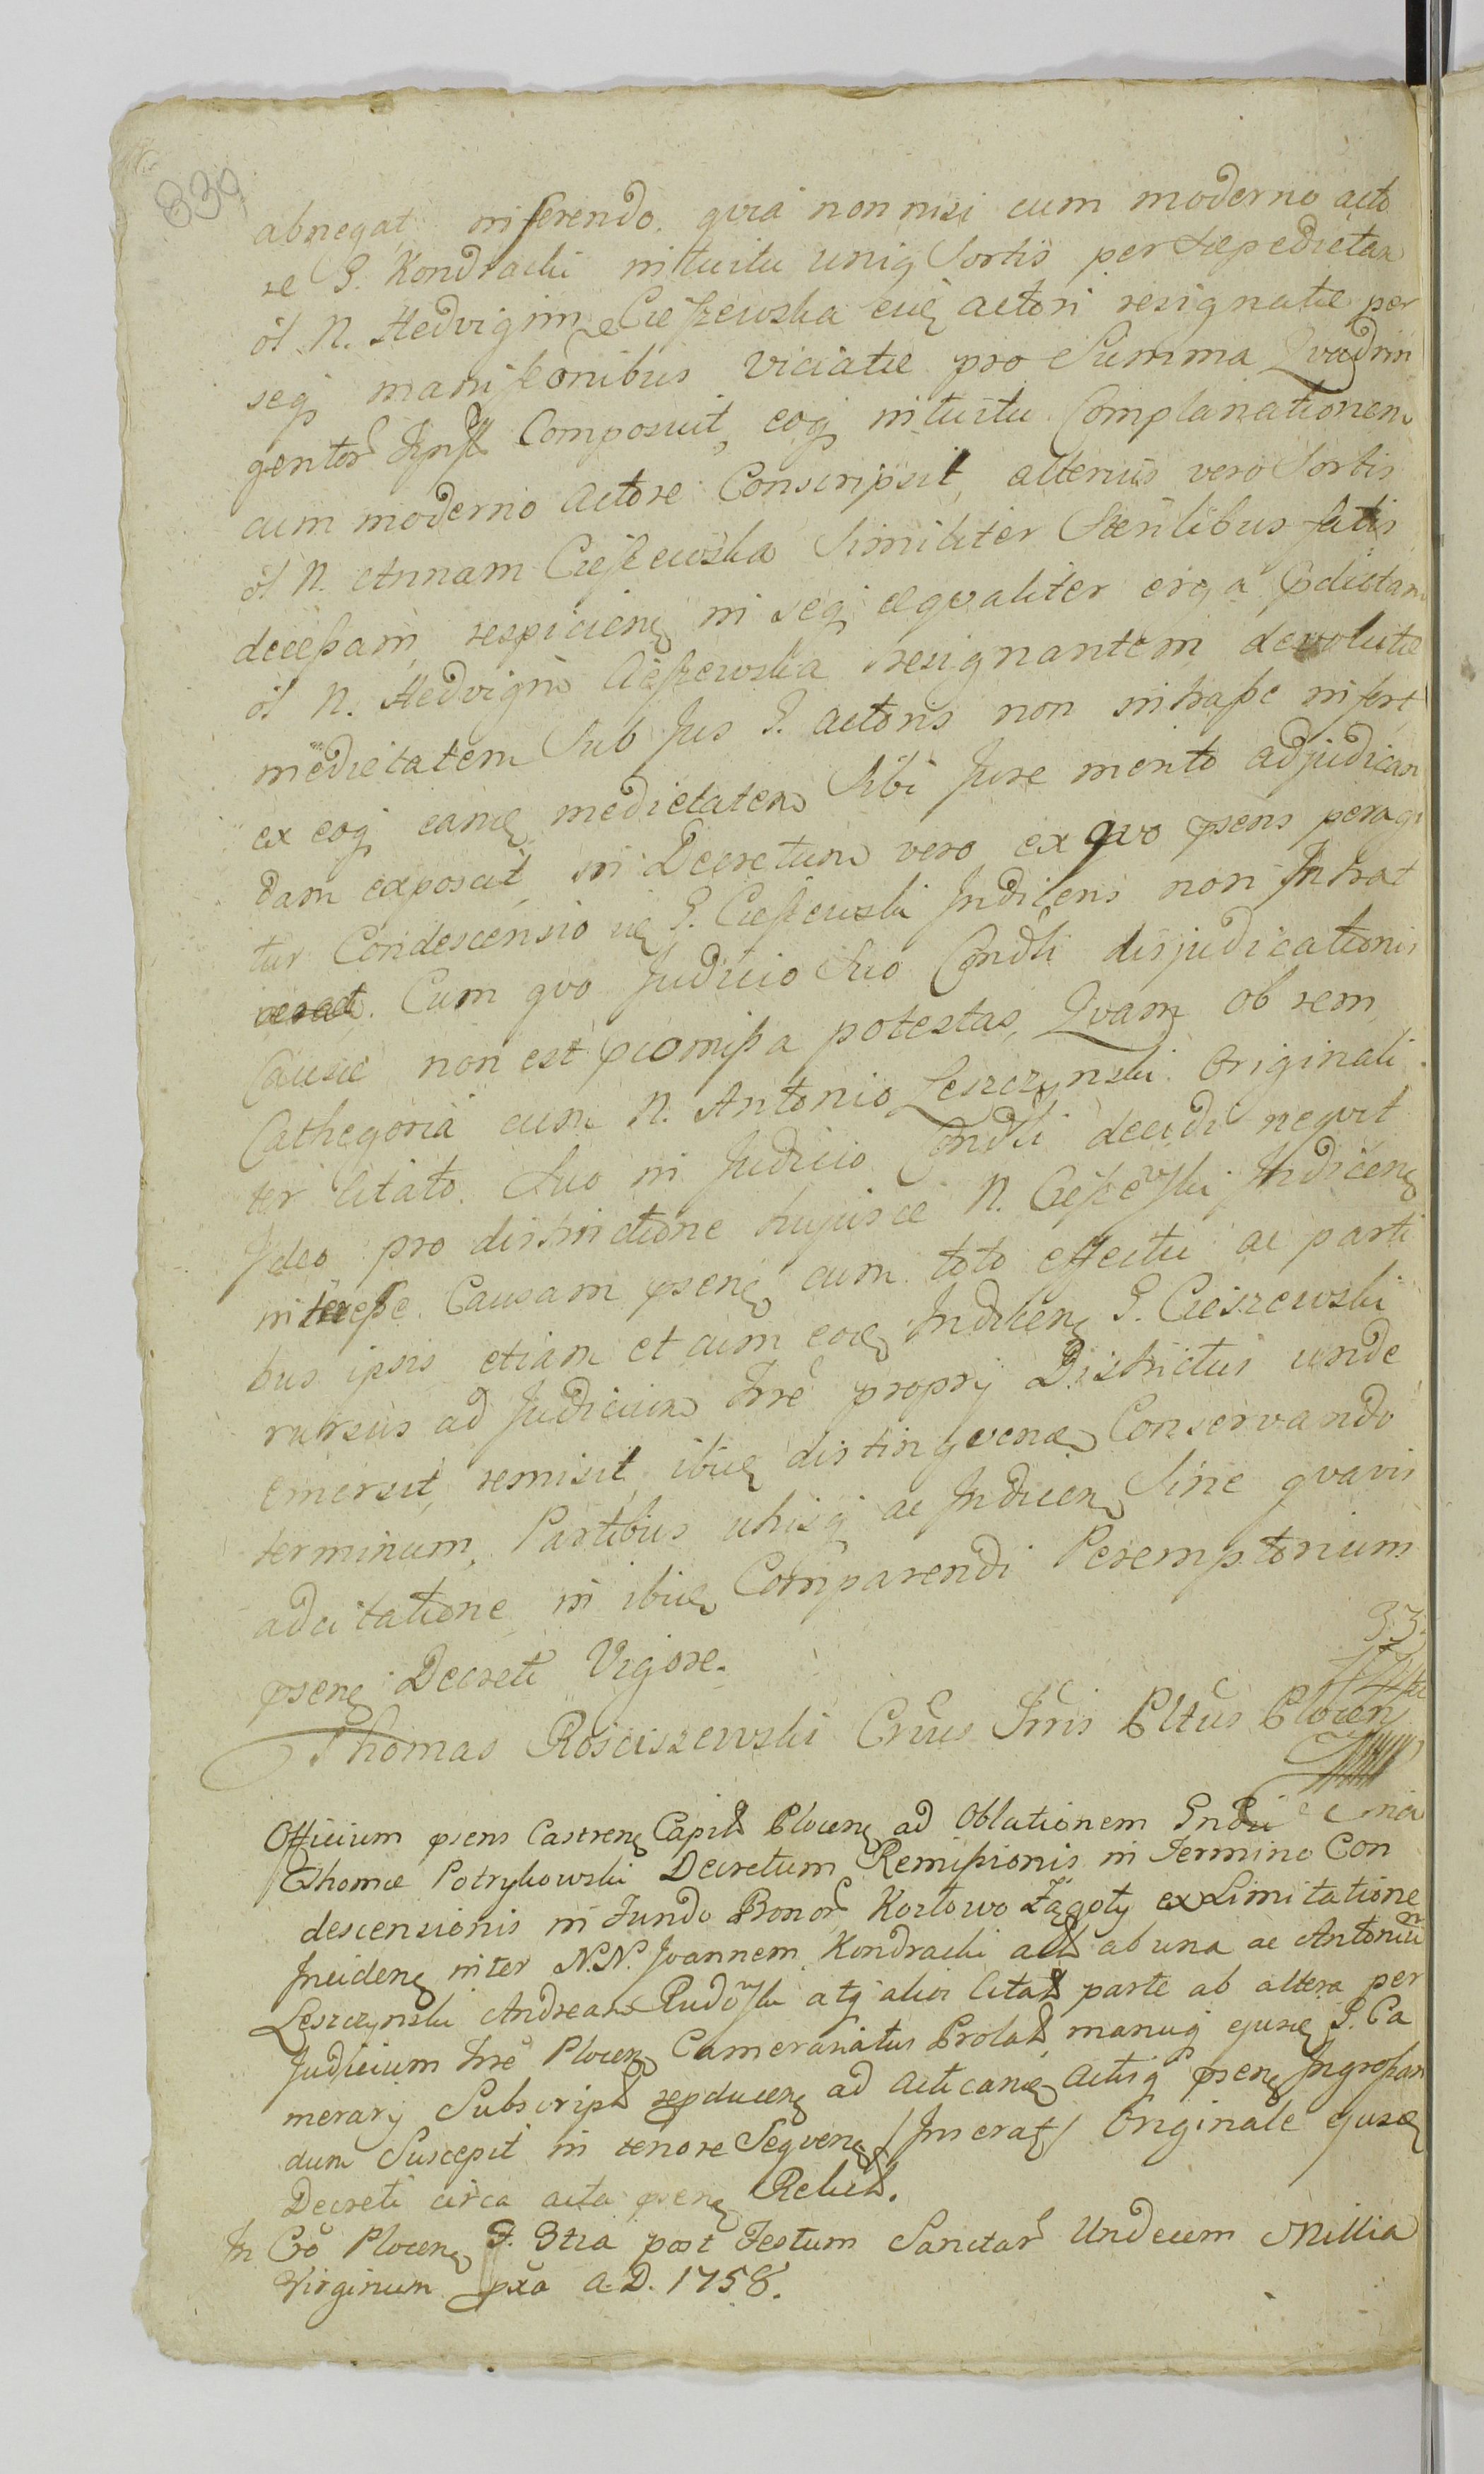 839
abnegat, inferendo, qvia non nisi cum moderno acto
re G. Kondracki intuitu unig Sortis per saepedictam
ol N. Hedvigim Cieszewska eidę actori resignatae per
seq manifeonibus viciatae pro Summa Qvadrin
gentor Composuit, eoq intuitu Complanationem
cum moderno actore Conscripsit, alterius vero Sortis
ol N. Annam Cieszewska Similiter Sterilibus fatis
decessam, respicienę in seq aeqvaliter erga pdictam
ol N. Hedvigim Cieszewska resignantem devolutae
medietatem Sub Jus G. actoris non intrasse infert
ex eoq eandę medietatem Sibi Jure merito adjudican
dam exposcit, in Decretum vero ex qvo psens peragi
tur Condescensio idę G. Cieszewski Indicens non Intrat
Cum qvo Judicio Suo Condli disjudicationis
Causae non est promissa potestas, Qvam ob rem
Cathegoria cum N. Antonio Leszczynski Originali
ter Citato Suo in Judicio Condli decidi neqvit
Ideo pro distinctione hujusce N. Cieszewski Indicenę
interesse Causam psenę cum toto effectu ac parti
bus ipsis etiam et cum eodę Indicenę G. Cieszewski
rursus ad Judicium Trre proprij Districtus unde
emersit, remisit, ibidę distingvendę Conservando
terminum, Partibus utrisq ac Indicenę Sine qvavis
adcitatione in ibidę Comparendi Peremptorium
psenę Decreti Vigore.
Thomas Rościszewski Crius Trris Pltus Plocen
Officium psens Castrenę Capitł Plocenę ad Oblationem
Thomae Potrykowski Decretum Remissionis in Termino Con
descensionis in Fundo Bonor Kozłowo Żągoty ex Limitatione
Incidenę inter N.N. Joannem Kondracki actł ab una ac Antoniu
Leszczynski Andream Rudoski atq alios Citatł parte ab altera per
Judicium Trre Plocenę Camerariatus Prolatł, manuq ejusdę G. Ca
merarij Subscriptł repducenę ad acticandę actisq psenę Ingrossan
dum Suscepit in tenore Seqvenę /Inseratę/ Originale ejusdę
Decreti circa acta psenę Relictł.
In Cro Plocenę F. 3tia post Festum Sanctar Undecem Millia
Virginum pxa A. D. 1758.